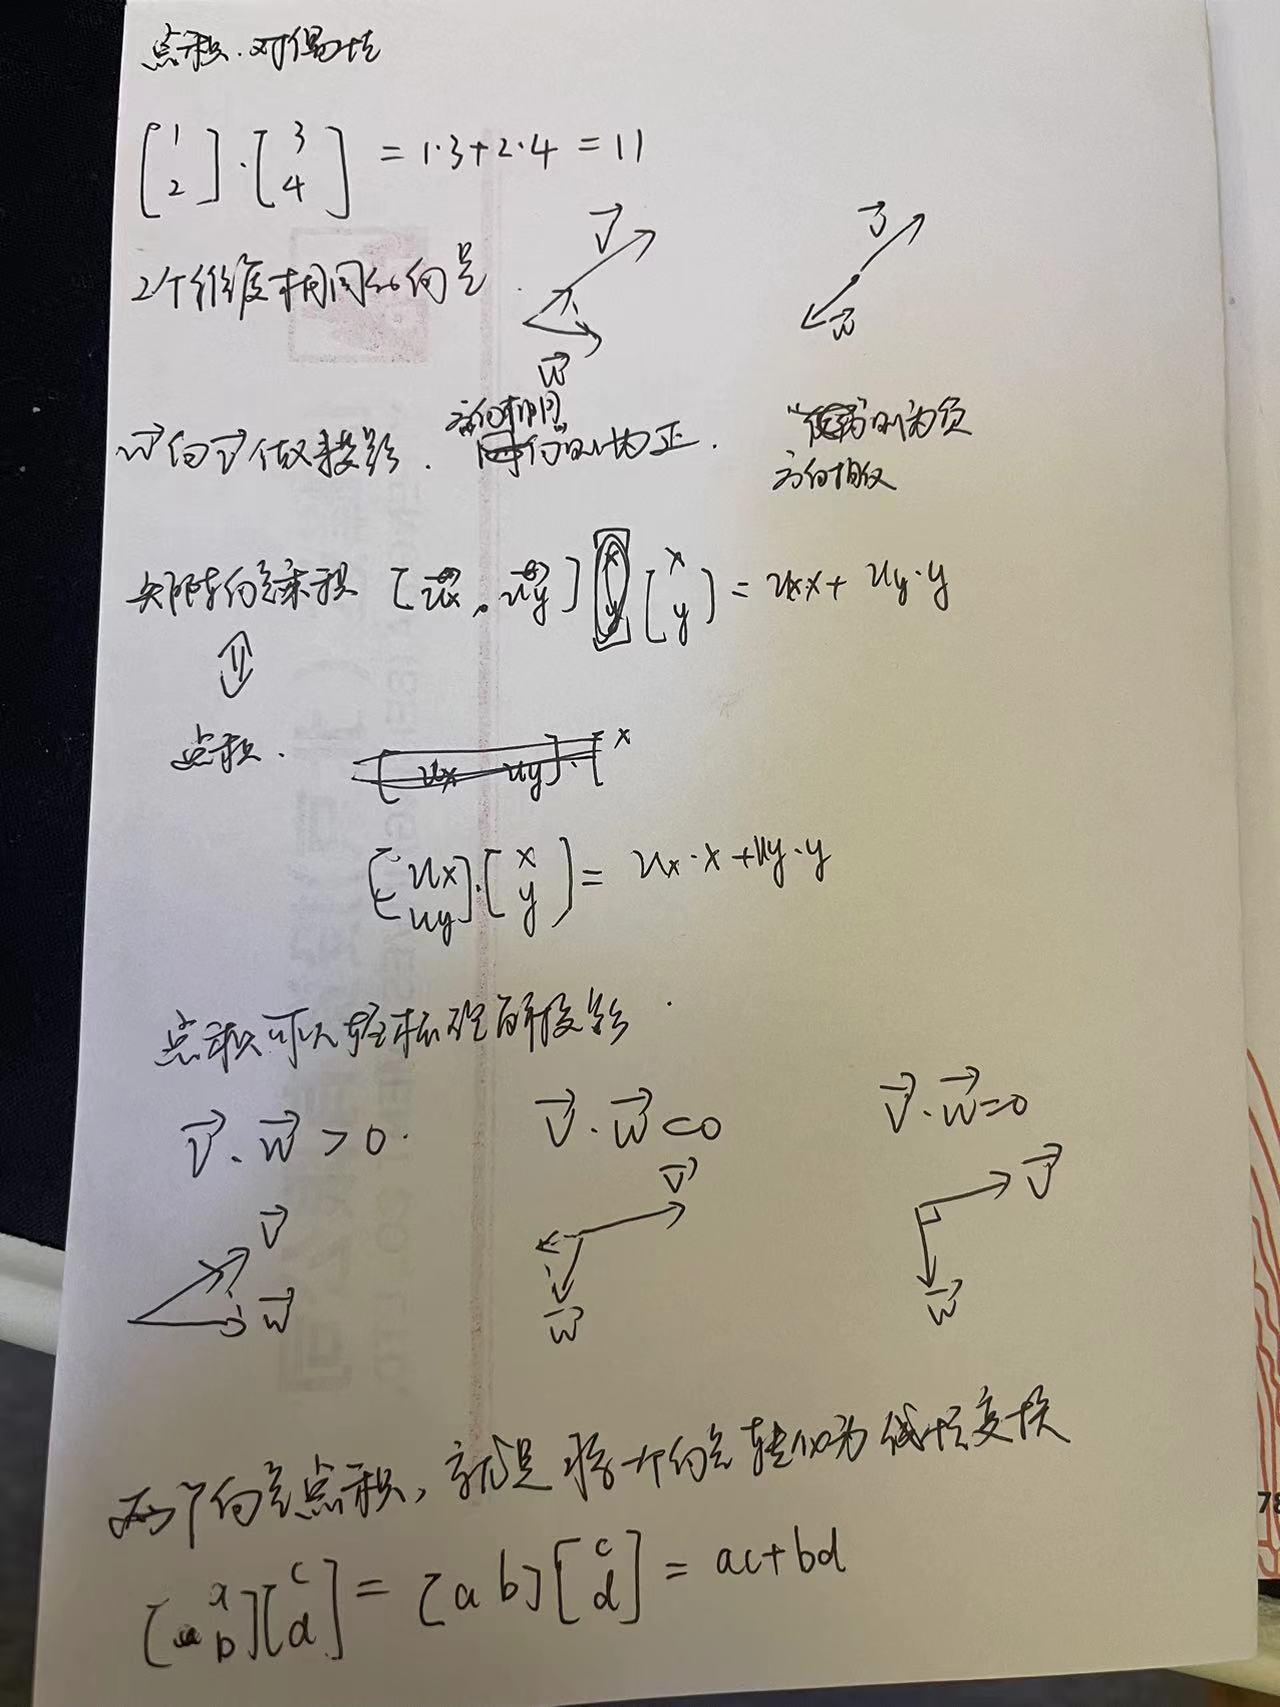 点积.对偶性
[1 2]·[3 4] = 1·3+2·4 = 11
2个维度相同的向量
v
w
v
w
w向v做投影.
方向相同
则为正.
则为负
方向相反
矩阵向量乘积 [ux, uy] [x y] = ux·x + uy·y
⇓
点积.
[ux uy]·[x
[ux uy]·[x y] = ux·x + uy·y
点积可以理解投影.
v·w > 0.
v·w < 0
v·w = 0
v
w
v
w
v
w
两个向量点积, 就是将一个向量转化为线性变换
[a b][c d] = [a b][c d] = ac+bd
78